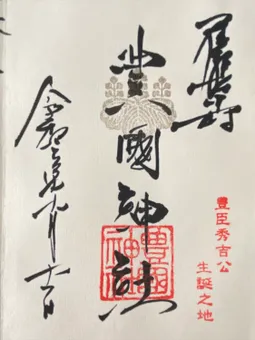 豊國神社
豊國神社
豊臣秀吉公
生誕之地
令和元年九月